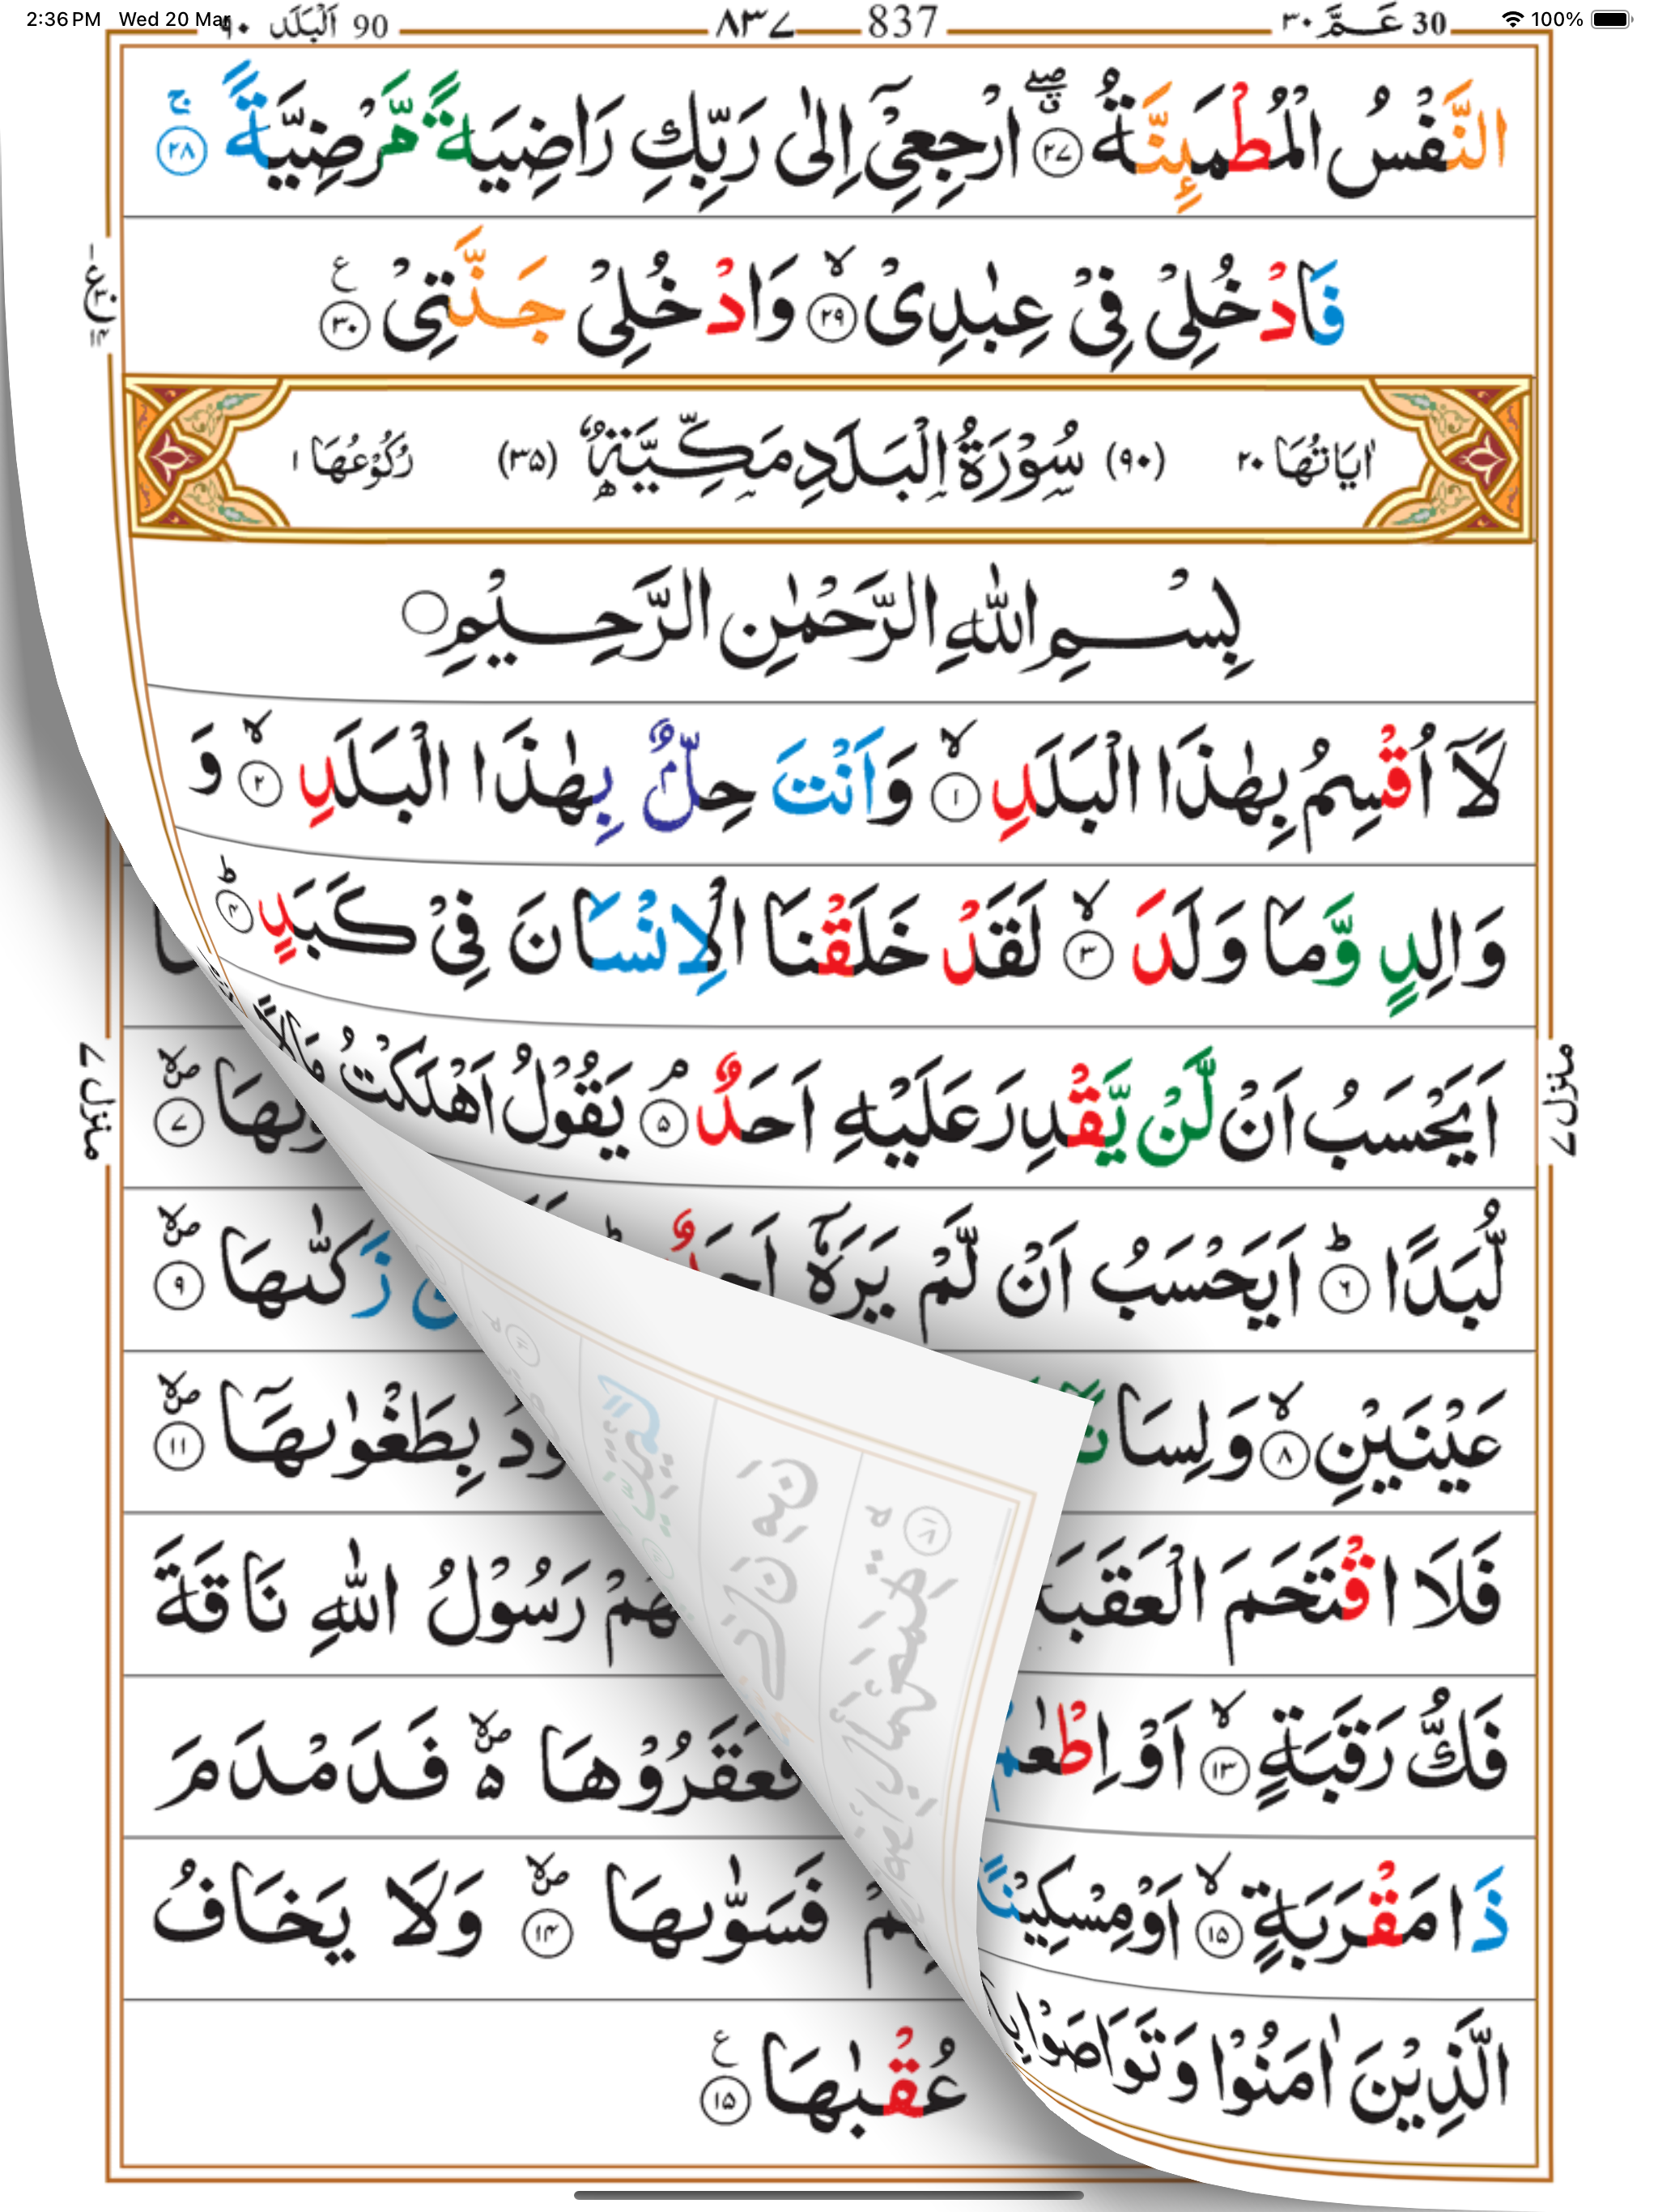 2:36 PM Wed 20 Mar 100%
30 عَـمَّ ٣٠ 837 ٨٣٧ 90 اَلْبَلَد ٩٠
النَّفْسُ الْمُطْمَىِٕنَّةُ ۝٢٧ ارْجِعِىْۤ اِلٰى رَبِّكِ رَاضِيَةً مَّرْضِيَّةً ۝٢٨ ج
فَادْخُلِىْ فِىْ عِبٰدِىْ ۝٢٩ لا وَادْخُلِىْ جَنَّتِىْ ۝٣٠ ع
اٰيَاتُهَا ٢٠ (٩٠) سُوْرَةُ الْبَلَدِ مَكِّيَّةٌ (٣٥) رُكُوْعُهَا ١
بِسْمِ اللّٰهِ الرَّحْمٰنِ الرَّحِيْمِ
لَاۤ اُقْسِمُ بِهٰذَا الْبَلَدِ ۝١ لا وَاَنْتَ حِلٌّۢ بِهٰذَا الْبَلَدِ ۝٢ لا وَ
وَالِدٍ وَّمَا وَلَدَ ۝٣ لا لَقَدْ خَلَقْنَا الْاِنْسَانَ فِىْ كَبَدٍ ۝٤ ط
اَيَحْسَبُ اَنْ لَّنْ يَّقْدِرَ عَلَيْهِ اَحَدٌ ۝٥ م يَقُوْلُ اَهْلَكْتُ مَالًا ۝٧
لُّبَدًا ۝٦ ط اَيَحْسَبُ اَنْ لَّمْ يَرَهٗۤ اَحَدٌ زَكّٰىهَا ۝٩
عَيْنَيْنِ ۝٨ لا وَلِسَانًا بِطَغْوٰىهَاۤ ۝١١
فَلَا اقْتَحَمَ الْعَقَبَةَ رَسُوْلُ اللّٰهِ نَاقَةَ
فَكُّ رَقَبَةٍ ۝١٣ لا اَوْ اِطْعٰمٌ فَعَقَرُوْهَا فَدَمْدَمَ
ذَا مَقْرَبَةٍ ۝١٥ لا اَوْ مِسْكِيْنًا فَسَوّٰىهَا ۝١٤ وَلَا يَخَافُ
الَّذِيْنَ اٰمَنُوْا وَتَوَاصَوْا عُقْبٰهَا ۝١٥ ع
منزل ٧
منزل ٧